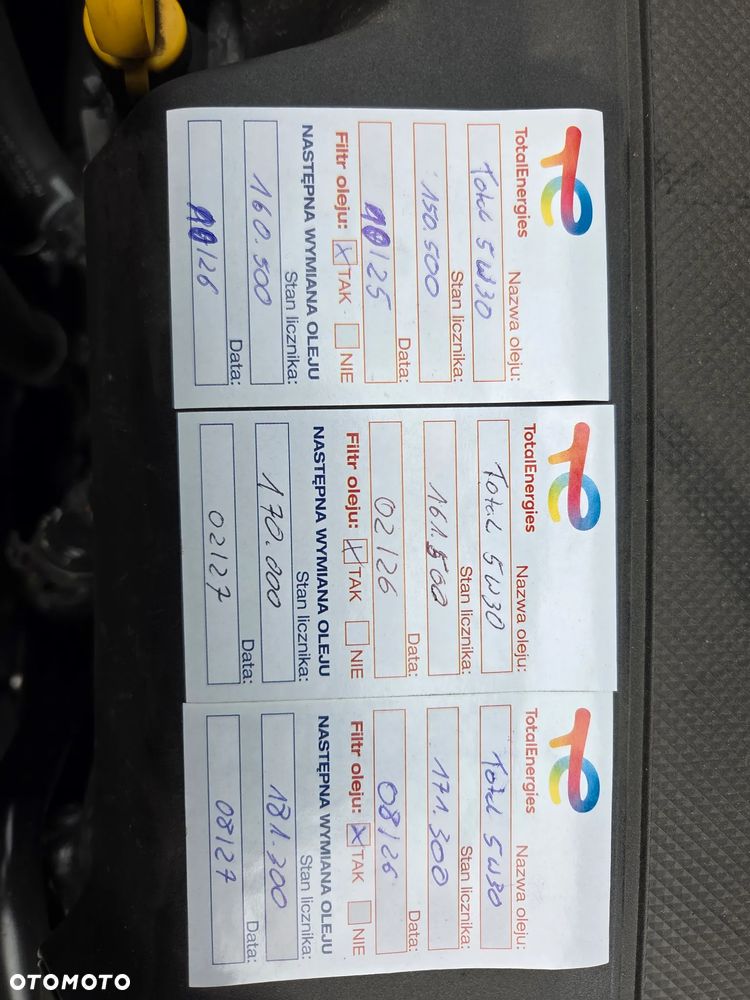 TotalEnergies
Nazwa oleju:
Total 5W30
Stan licznika:
150.500
Data:
/25
Filtr oleju: X TAK NIE
NASTĘPNA WYMIANA OLEJU
Stan licznika:
160.500
Data:
/26
TotalEnergies
Nazwa oleju:
Total 5W30
Stan licznika:
161.500
Data:
02/26
Filtr oleju: X TAK NIE
NASTĘPNA WYMIANA OLEJU
Stan licznika:
170.000
Data:
02/27
TotalEnergies
Nazwa oleju:
Total 5W30
Stan licznika:
171.300
Data:
08/26
Filtr oleju: X TAK NIE
NASTĘPNA WYMIANA OLEJU
Stan licznika:
181.300
Data:
08/27
OTOMOTO